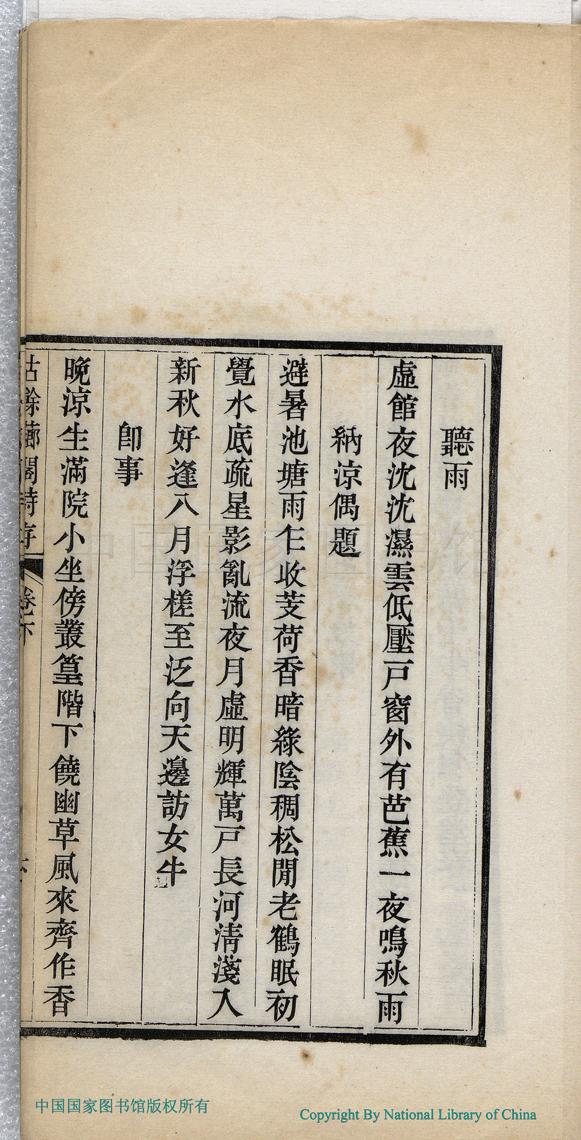 聽雨
虛館夜沈沈濕雲低壓戸窗外有芭蕉一夜鳴秋雨
納涼偶題
避暑池塘雨乍收芰荷香暗綠陰稠松閒老鶴眠初
覺水底疏星影亂流夜月虛明輝萬戸長河清淺入
新秋好逢八月浮槎至泛向天邊訪女牛
卽事
晚涼生滿院小坐傍叢篁階下饒幽草風來齊作香
餘 閣詩存 卷下
中国国家图书馆版权所有
Copyright By National Library of China